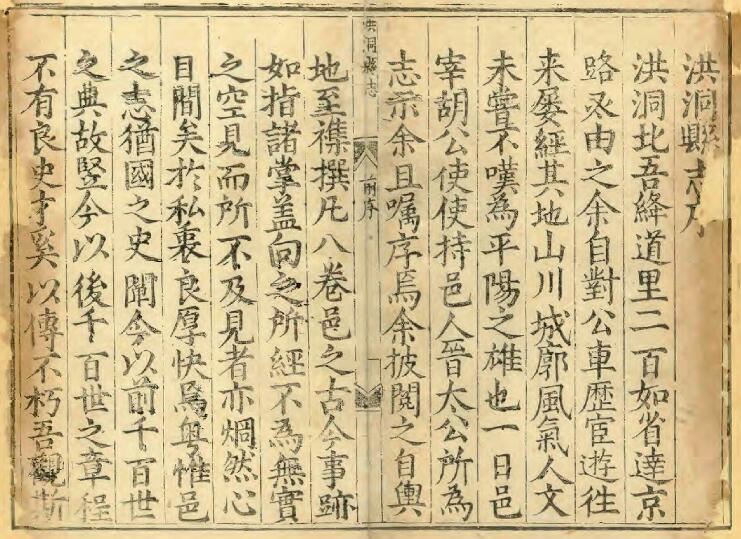 洪洞縣志序
洪洞北吾絳道里二百如省達京
路亟由之余自對公車歷宦遊徃
来屡經其地山川城廓風氣人文
未嘗不嘆為平陽之雄也一日邑
宰胡公使使持邑人晉太公所為
志示余且嘱序焉余披閱之自輿
洪洞縣志
前序
地至襍撰凡八卷邑之古今事跡
如指諸掌盖向之所經不為無實
之空見而所不及見者亦烱然心
目間矣於私衷良厚快焉粤惟邑
之志猶國之史闡今以前千百世
之典故竪今以後千百世之章程
不有良史才奚以傳不朽吾觀斯